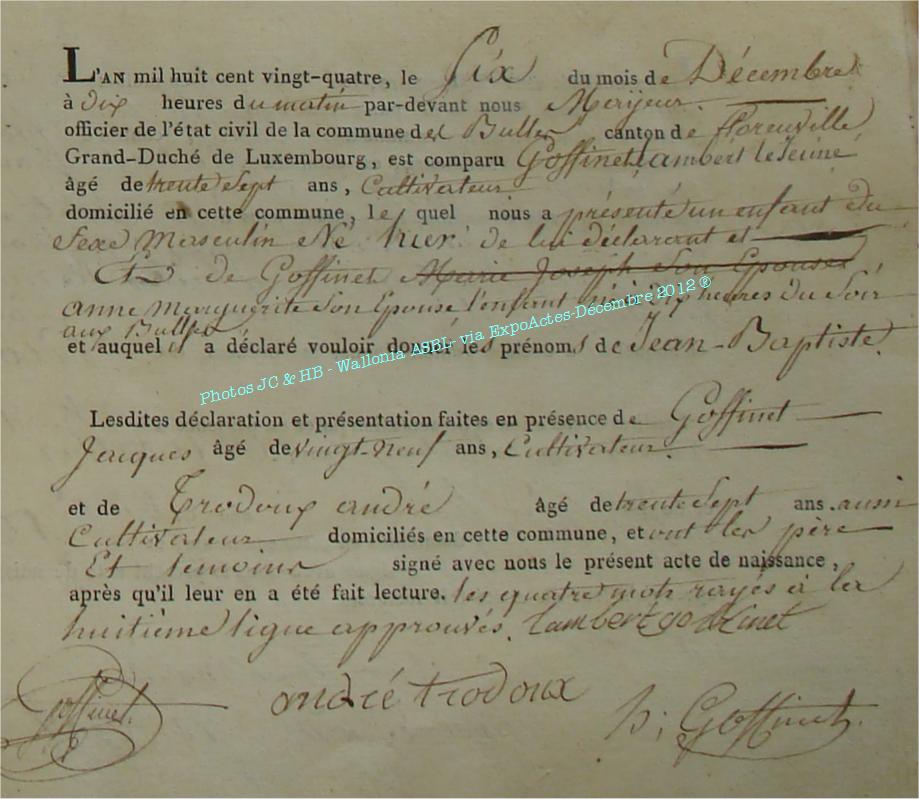 L'AN mil huit cent vingt-quatre, le Six du mois de Décembre
à dix heures du matin par-devant nous
officier de l'état civil de la commune des Bulles canton de florenville
Grand-Duché de Luxembourg, est comparu Goffinet Lambert le Jeune
âgé de trente Sept ans, Cultivateur
domicilié en cette commune, le quel nous a présenté un enfant du
Sexe Masculin Né hier de lui déclarant et
Et de Goffinet Marie Joseph Son Epouse
anne Marguerite Son Epouse l'enfant heures du Soir
aux Bulles
et auquel il a déclaré vouloir donner les prénoms de Jean-Baptiste.
Photos JC & HB - Wallonia ASBL- via ExpoActes-Décembre 2012 ®
Lesdites déclaration et présentation faites en présence de Goffinet
Jacques âgé de vingt-neuf ans, Cultivateur.
et de Trodoux andré âgé de trente Sept ans. aussi
Cultivateur domiciliés en cette commune, et ont les père
Et temoins signé avec nous le présent acte de naissance,
après qu'il leur en a été fait lecture. les quatre mots rayés à la
huitième ligne approuvés. Lambert goffinet
Goffinet. andré trodoux Goffinet.